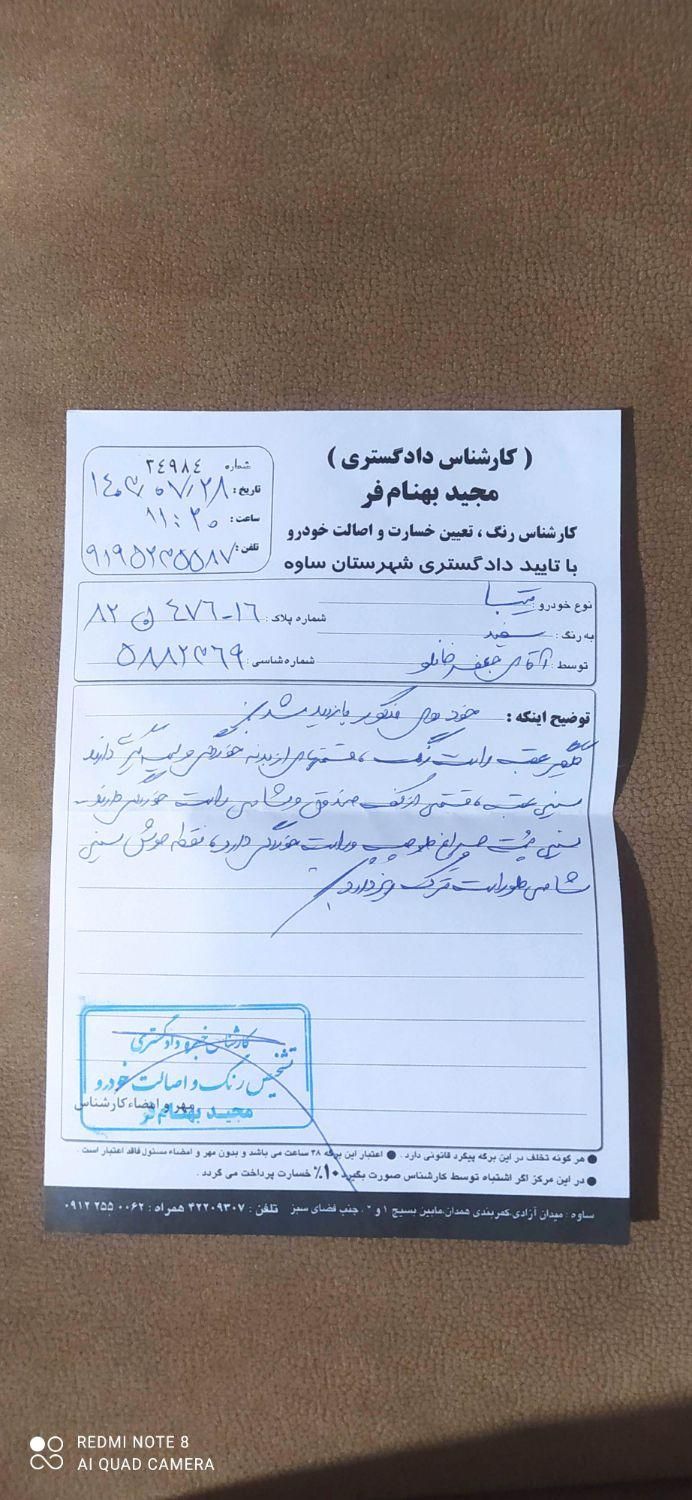 ( کارشناس دادگستری )
مجید بهنام‌فر
کارشناس رنگ ، تعیین خسارت و اصالت خودرو
با تایید دادگستری شهرستان ساوه
شماره ۲٤۹۸٤
تاریخ : ۱٤۰۳/۰۷/۲۸
ساعت : ۱۱:۲۰
تلفن : ۹۱۹۵۲۳۵۵۸۷
نوع خودرو : تیبا
شماره پلاک : ۱۶-۴۷۶ ن ۸۲
به رنگ : سفید
توسط : آقای جعفرخانلو
شماره شاسی : ۵۸۸۲۳۶۹
توضیح اینکه : خودروی مذکور بازدید شد
گلگیر عقب راست رنگ ، قسمتهای از بدنه خوردگی و لیسه‌گیری دارند
سینی عقب ، قسمتی از کف صندوق و شاسی راست خوردگی دارند
سینی پشت چراغ جلو چپ و راست خوردگی دارد ، نقطه جوش سینی
شاسی جلو راست ترک ریز دارد
کارشناس خبره دادگستری
تشخیص رنگ و اصالت خودرو
مجید بهنام فر
مهر و امضاء کارشناس
● هر گونه تخلف در این برگه پیگرد قانونی دارد . ● اعتبار این برگه ۴۸ ساعت می باشد و بدون مهر و امضاء مسئول فاقد اعتبار است .
● در این مرکز اگر اشتباه توسط کارشناس صورت بگیرد ۱۰٪ خسارت پرداخت می گردد .
ساوه : میدان آزادی،کمربندی همدان،مابین بسیج ۱ و ۲ ، جنب فضای سبز تلفن : ۴۲۲۰۹۳۰۷ همراه : ۰۰۶۲ ۲۵۵ ۰۹۱۲
REDMI NOTE 8
AI QUAD CAMERA